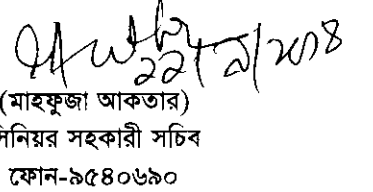 ২২/৯/২০১৪
(মাহফুজা আকতার)
সিনিয়র সহকারী সচিব
ফোন-৯৫৪০৬৯০